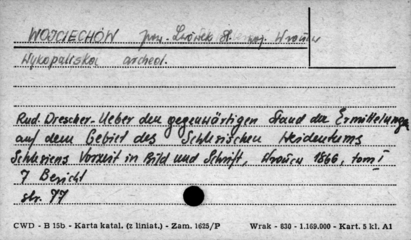 WOJCIECHÓW pow. Lwówek Śl. woj. Wrocław
Wykopaliska archeol.
Rud. Drescher - Ueber den gegenwärtigen Stand der Ermittelungen
auf dem Gebiet des Schlesischen Heidentums
Schlesiens Vorzeit in Bild und Schrift, Wrocław 1866, tom I
7 Bericht
str. 77
CWD - B 15b - Karta katal. (z liniat.) - Zam. 1625/P Wrak - 630 - 1.169.000 - Kart. 5 kl. A1